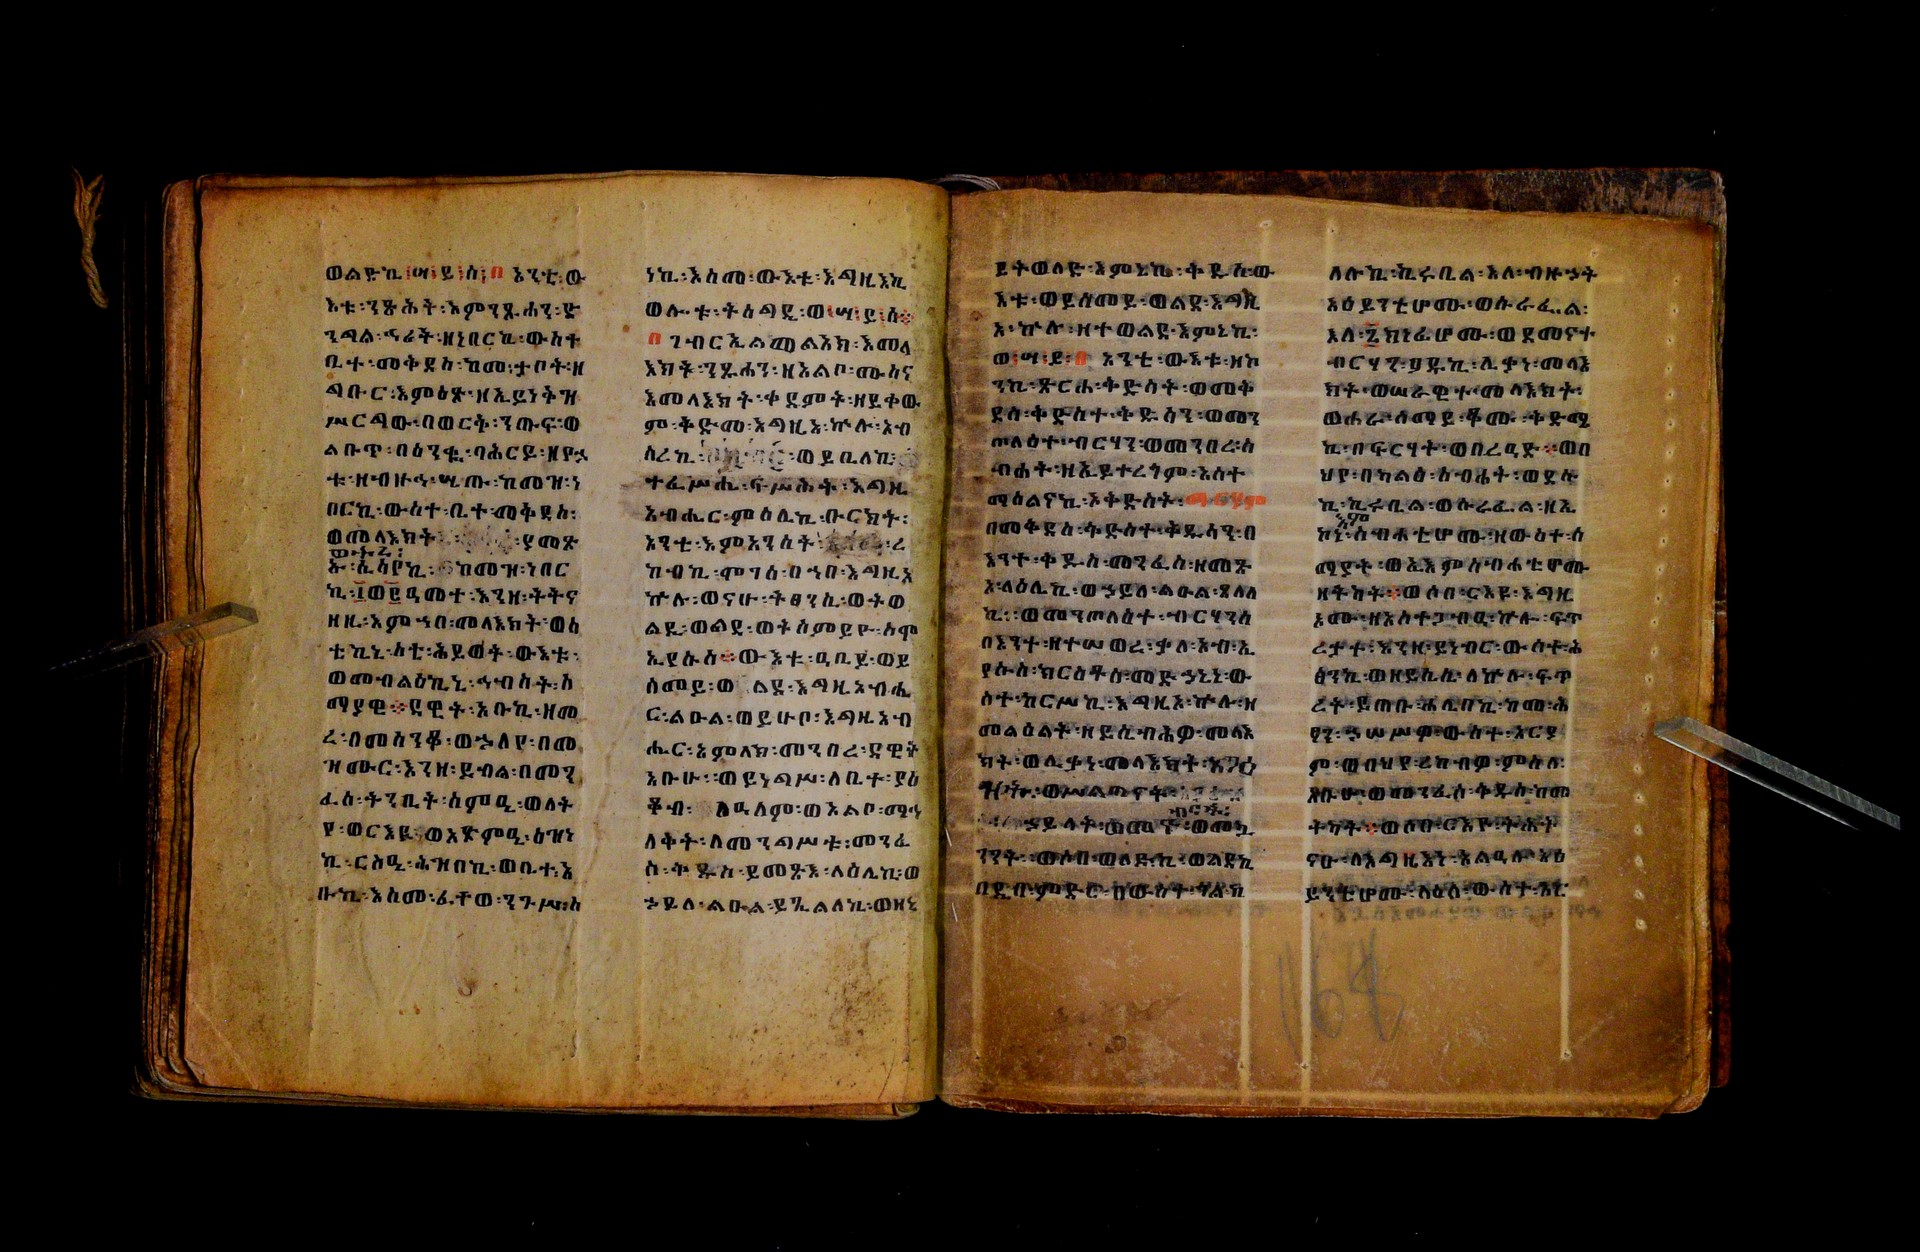 ወልድኪ፡ ይ፡ ስ፡ በ እንቲ፡ ው
እቱ፡ ንጽሕት፡ እምንጹሐን፡ ድ
ንጓል፡ ኅሪት፡ ዘነበርኪ፡ ውስተ
ቤተ፡ መቅደስ፡ ከመ፡ ታቦት፡ ዘ
ግቡር፡ እምዕፅ፡ ዘኢይነቅዝ
ሥርግው፡ በወርቅ፡ ንጡፍ፡ ወ
ልቡጥ፡ በዕንቁ፡ ባሕርይ፡ ዘየኃ
ቱ፡ ዘብዙኅ፡ ሤጡ፡ ከመዝ፡ ነ
በርኪ፡ ውስተ፡ ቤተ፡ መቅደስ፡
ወመላእክት፡ ያመጽ
ወትረ፡
ኡ፡ ሲሳየኪ፡ ከመዝ፡ ነበር
ኪ፡ ፲ወ፪ዓመተ፡ እንዘ፡ ትትና
ዘዚ፡ እም ኀበ፡ መላእክት፡ ወስ
ቴኪኒ፡ ስቴ፡ ሕይወት፡ ውእቱ፡
ወመብልዕኪኒ፡ ኅብስት፡ ሰ
ማያዊ፡ ዳዊት፡ አቡኪ፡ ዘመ
ረ፡ በመሰንቆ፡ ወኃለየ፡ በመ
ዝሙር፡ እንዘ፡ ይብል፡ በመን
ፈሰ፡ ትንቢት፡ ስምዒ፡ ወለት
የ፡ ወርእዪ፡ ወአጽምዒ፡ ዕዝነ
ኪ፡ ርስዒ፡ ሕዝበኪ፡ ወቤተ፡ አ
ቡኪ፡ እስመ፡ ፈተወ፡ ንጉሥ፡ ስ
ነኪ፡ እስመ፡ ውእቱ፡ እግዚእኪ
ወሎቱ፡ ትሰግዲ፡ ወ ይ፡ ስ፡
በ ገብርኤል መልአክ፡ እመላ
እክት፡ ንጹሐን፡ ዘእልቦ፡ ሙስና
እመላእክት፡ ቀደምት፡ ዘይቀው
ም፡ ቅድመ፡ እግዚአ፡ ኵሉ፡ አብ
ሰረኪ፡ ወይቤለኪ፡
ተፈሥሒ፡ ፍሥሕት፡ እግዚ
አብሔር፡ ምስሌኪ፡ ቡርክት፡
አንቲ፡ እምአንስት፡ ረ
ከብኪ፡ ሞገሰ፡ በኀበ፡ እግዚአ
ኵሉ፡ ወናሁ፡ ትፀንሲ፡ ወትወ
ልዲ፡ ወልደ፡ ወትሰምይዮ፡ ስሞ
ኢየሱስ፡ ውእቱ፡ ዓቢይ፡ ወይ
ሰመይ፡ ወ ልደ፡ እግዚአብሔ
ር፡ ልዑል፡ ወይሁቦ፡ እግዚአብ
ሔር፡ አምላክ፡ መንበረ፡ ዳዊት
አቡሁ፡ ወይነግሥ፡ ለቤተ፡ ያዕ
ቆብ፡ ለዓለም፡ ወአልቦ፡ ማኅ
ለቅት፡ ለመንግሥቱ፡ መንፈ
ስ፡ ቅዱስ፡ ይመጽእ፡ ላዕሌኪ፡ ወ
ኃይለ፡ ልዑል፡ ይጼልለኪ፡ ወዘኒ
ይትወለድ፡ እምኔኪ፡ ቅዱስ፡ ው
እቱ፡ ወይሰመይ፡ ወልደ፡ እግዚ
አ፡ ኵሉ፡ ዘተወልደ፡ እምኔኪ፡
ወ ይ፡ በ አንቲ፡ ውእቱ፡ ዘኮ
ንኪ፡ ጽርሐ፡ ቅድሳት፡ ወመቅ
ደሰ፡ ቅድስተ፡ ቅዱሳን፡ ወመን
ጦላዕተ፡ ብርሃን፡ ወመንበረ፡ ስ
ብሐት፡ ዘኢይተረጎም፡ አስተ
ማሰልናኪ፡ ኦቅድስት፡ ማርያም
በመቅደሰ፡ ቅድስተ፡ ቅዱሳን፡ በ
እንተ፡ ቅዱስ፡ መንፈስ፡ ዘመጽ
አ፡ ላዕሌኪ፡ ወኃይለ፡ ልዑል፡ ጸለለ
ኪ፡ ወመንጦላዕተ፡ ብርሃንሰ
በእንተ፡ ዘተሠወረ፡ ቃለ፡ አብ፡ ኢ
የሱስ፡ ክርስቶስ፡ መድኃኒነ፡ ው
ስተ፡ ከርሥኪ፡ እግዚአ፡ ኵሉ፡ ዘ
መልዕልት፡ ዘይሴብሕዎ፡ መላእ
ክት፡ ወሊቃነ፡ መላእክት፡ አጋዕ
ዝት፡ ወሥልጣናት፡
ብርት፡
ኃይላት፡ ወመኳ፡ ወመኳ
ንንት፡ ወሶበ፡ ወለድኪ፡ ወልደኪ
በጀ በ፡ ምድር፡ በውስተ፡ ጎልክ
ለሉኪ፡ ኪሩቤል፡ እለ፡ ብዙኃት
አዕይንቲሆሙ፡ ወሱራፌል፡
እለ፡ ፮ክነፊሆሙ፡ ወደመናተ
ብርሃን፡ ፆዱኪ፡ ሊቃነ፡ መላእ
ክት፡ ወሠራዊተ፡ መላእክት፡
ወሐራ፡ ሰማይ፡ ቆሙ፡ ቅድሜ
ኪ፡ በፍርሃት፡ ወበረዓድ፡ ወበ
ህየ፡ በካልዕ፡ ስብሔት፡ ወደሱ
ኪ፡ ኪሩቤል፡ ወሱራፌል፡ ዘኢ
እም
ክነ፡ ስብሐቲሆሙ፡ ዘውስተ፡ ሰ
ማያት፡ ወኢእምስብሐቲሆሙ
ዘትካት፡ ወሶበ፡ ርእዩ፡ እግዚ
ኦሙ፡ ዘአስተጋብዒ፡ ኵሉ፡ ፍጥ
ረታተ፡ እንዘ፡ ይነብር፡ ውስተ፡ ሕ
ፅንኪ፡ ወዘይሴሲ፡ ለኵሉ፡ ፍጥ
ረት፡ ይጠቡ፡ ሐሊበኪ፡ ከመ፡ ሕ
ፃን፡ ኃሠሥዎ፡ ውስተ፡ አርያ
ም፡ ወበህየ፡ ረከብዎ፡ ምስለ፡
አቡሁ፡ ወመንፈስ፡ ቅዱስ፡ ከመ
ትካት፡ ወሶበ፡ ርእዩ፡ ትሕት
ናሁ፡ ለእግዚእነ፡ አልዓሉ፡ አዕ
ይንቲሆሙ፡ ላዕለ፡ ውስተ፡ አር